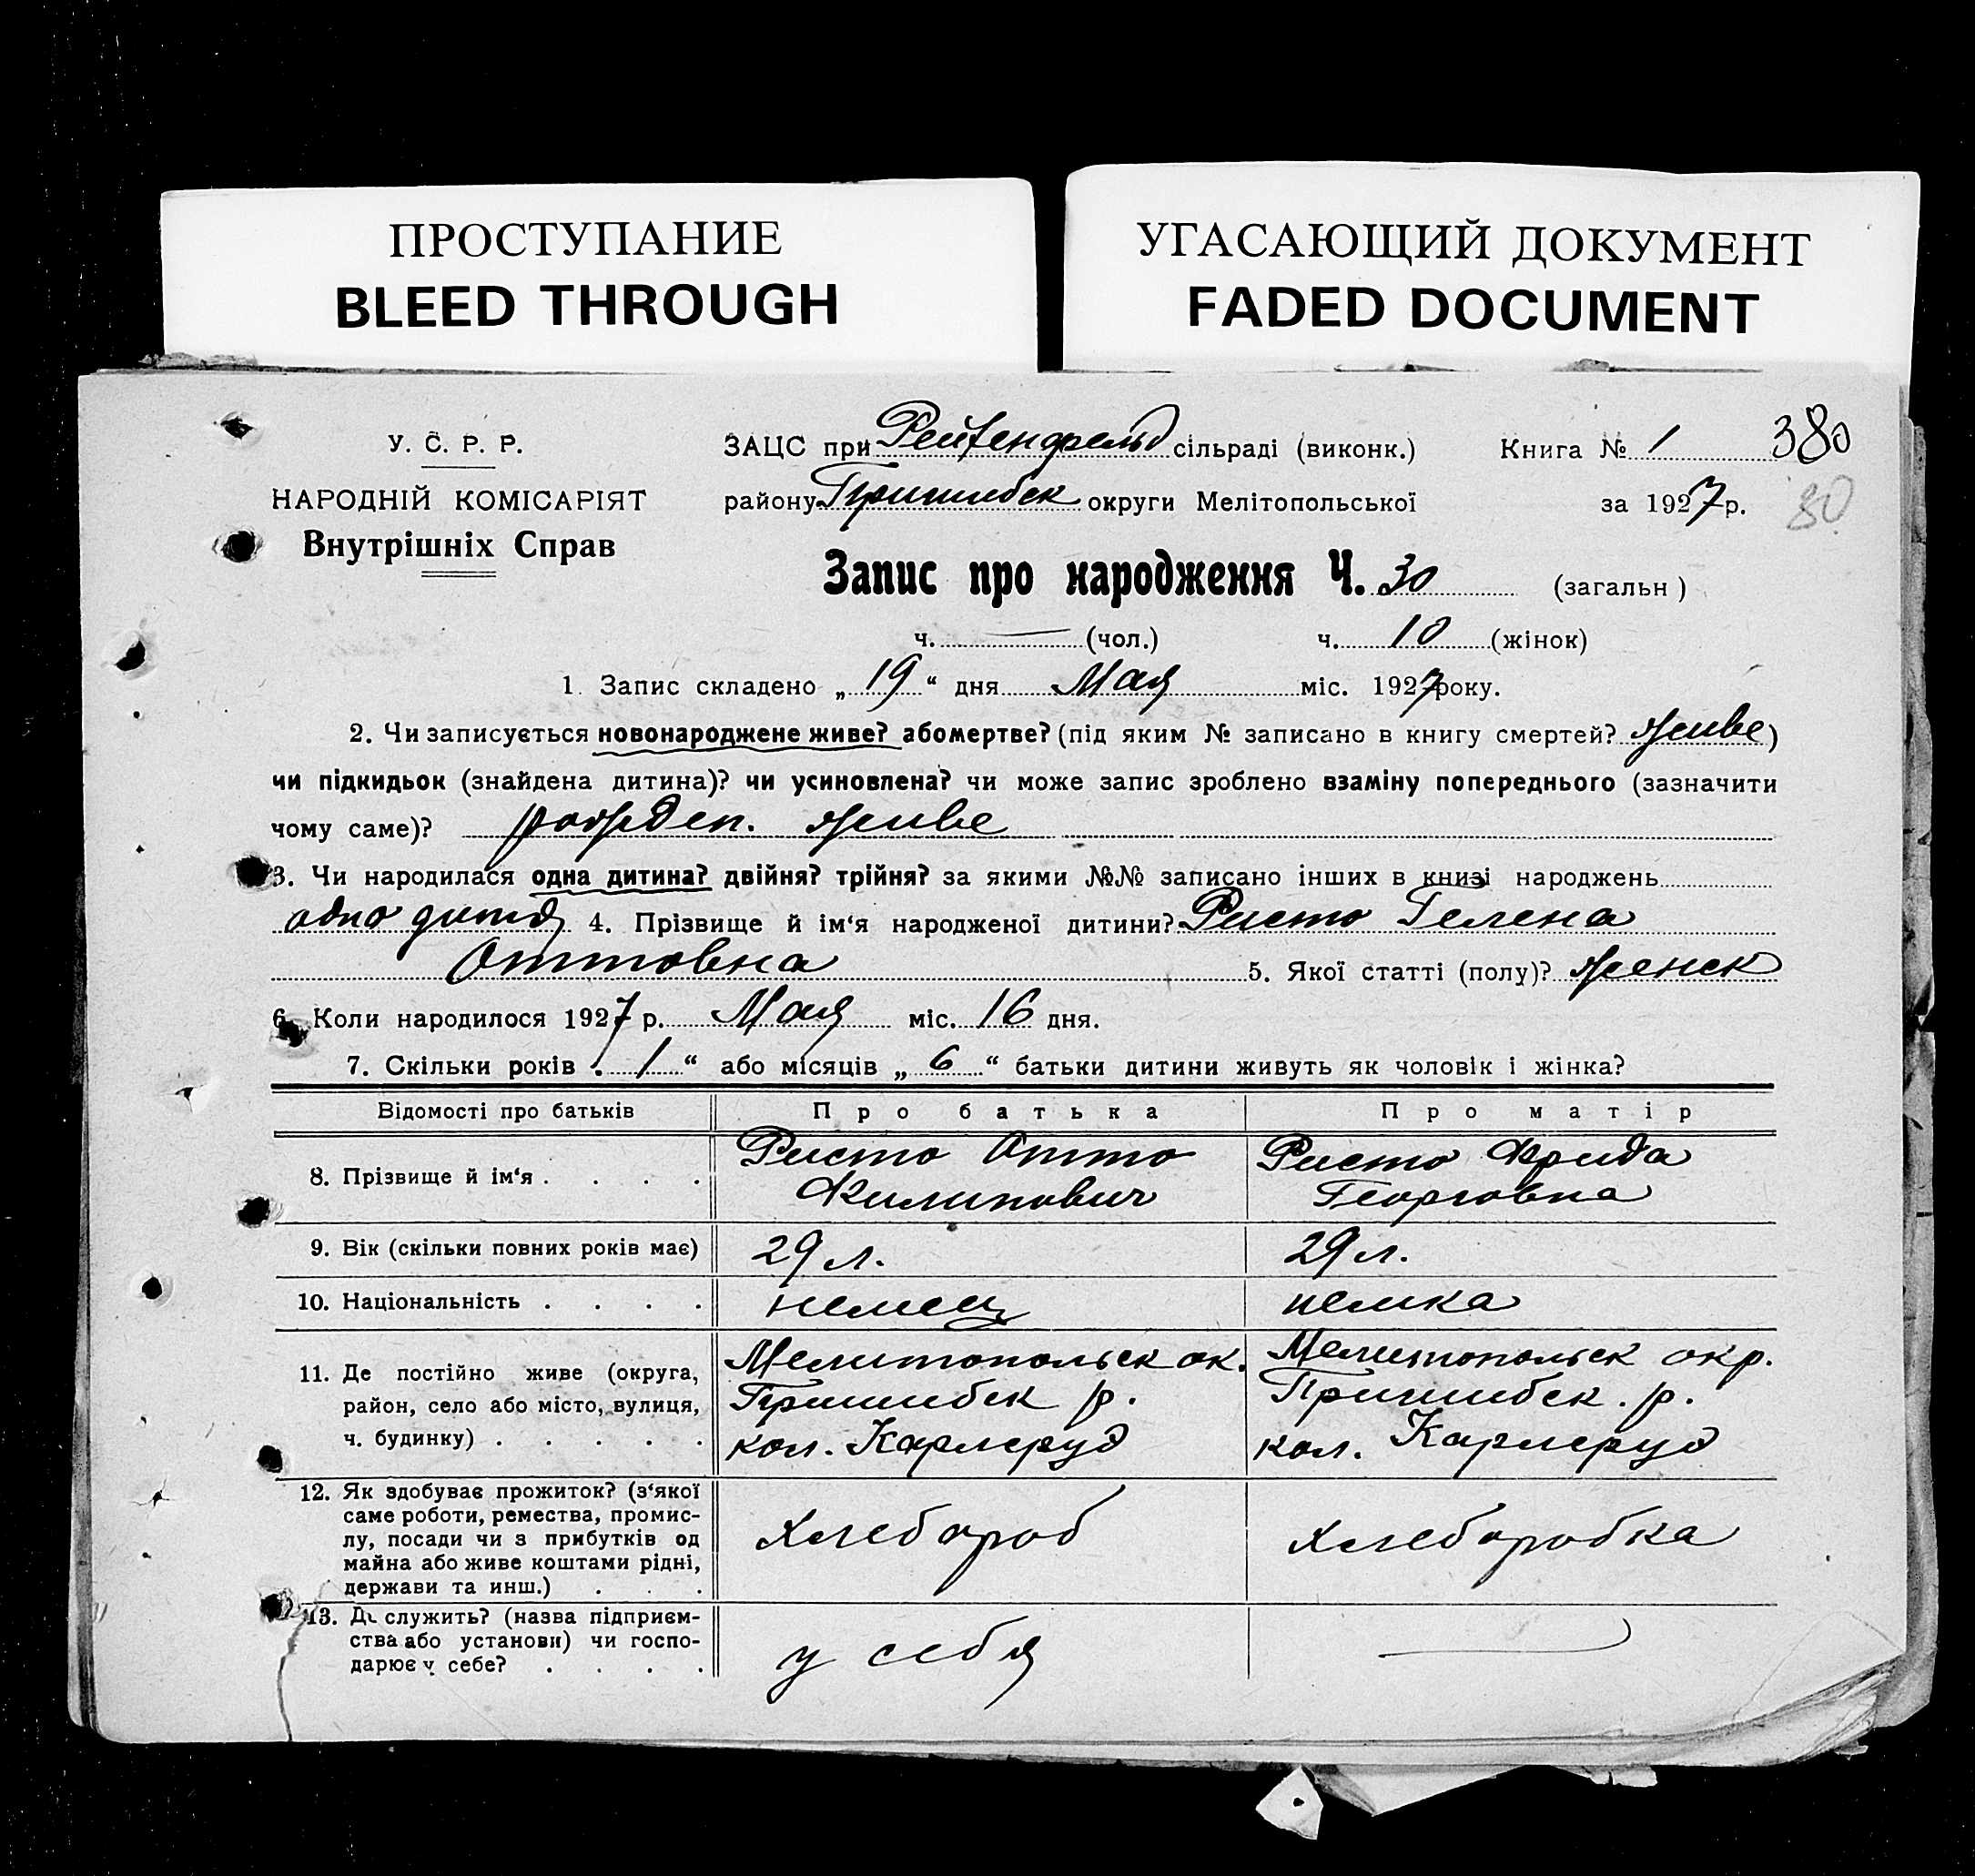 ПРОСТУПАНИЕ
BLEED THROUGH
УГАСАЮЩИЙ ДОКУМЕНТ
FADED DOCUMENT
У. С. Р. Р.
НАРОДНІЙ КОМІСАРІЯТ
Внутрішніх Справ
ЗАЦС при Рейхенфельд сільраді (виконк.) Книга № 1 380
району Пришибск округи Мелітопольської за 1927 р. 80
Запис про народження Ч. 30 (загальн)
ч. — (чол.) ч. 10 (жінок)
1. Запис складено „19“ дня Мая міс. 1927 року.
2. Чи записується новонароджене живе? або мертве? (під яким № записано в книгу смертей? живе)
чи підкидьок (знайдена дитина)? чи усиновлена? чи може запис зроблено взаміну попереднього (зазначити
чому саме)? рожден. живе
3. Чи народилася одна дитина? двійня? трійня? за якими №№ записано інших в книзі народжень
одно дитя 4. Прізвище й ім‘я народженої дитини? Ристо Гелена
Оттовна 5. Якої статті (полу)? женск
6. Коли народилося 1927 р. Мая міс. 16 дня.
7. Скільки років „1“ або місяців „6“ батьки дитини живуть як чоловік і жінка?
Відомості про батьків Про батька Про матір
8. Прізвище й ім‘я . . . . Ристо Отто Филипович Ристо Фрида Георговна
9. Вік (скільки повних років має) 29 л. 29 л.
10. Національність . . . . немец немка
11. Де постійно живе (округа, Мелитопольск ок. Мелитопольск окр.
район, село або місто, вулиця, Пришибск р. Пришибск. р.
ч. будинку) . . . . . кол. Карлеруэ кол. Карлеруэ
12. Як здобуває прожиток? (з‘якої
саме роботи, ремества, промис-
лу, посади чи з прибутків од хлебороб хлеборобка
майна або живе коштами рідні,
держави та инш.) . . .
13. Де служить? (назва підприєм-
ства або установи) чи госпо- у себя —
дарює у себе? . . . .